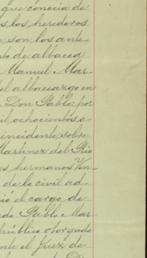 que conocia de
los herederos
son los ante
to de albacea
Manuel Mar
el albaceazgo en
Don Pablo por
il ochocientos a
incidente sobre
Martinez del Rio
s hermanos Ven
de lo civil ad
el cargo de
de Pablo Mar
público otorgado
nte el Juez de